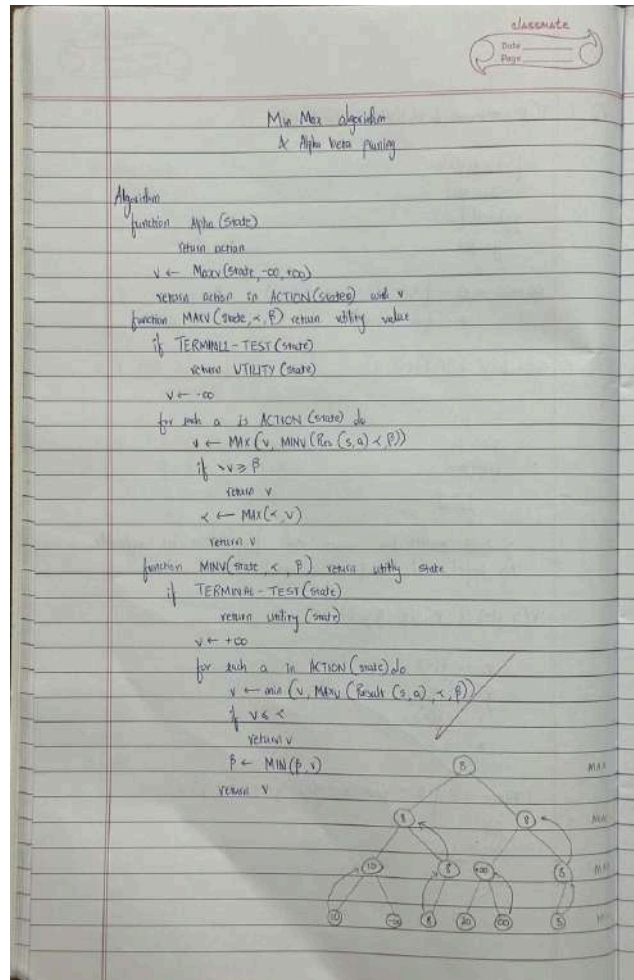 classmate
Date
Page
Min Max algorithm
& Alpha beta pruning
Algorithm
function Alpha (State)
return action
v ← Maxv (state, -∞, +∞)
return action in ACTION (states) with v
function MAXV (state, α, β) return utility value
if TERMINAL - TEST (state)
return UTILITY (state)
v ← -∞
for each a is ACTION (state) do
v ← MAX (v, MINV (Res (s, a) α, β))
if v ≥ β
return v
α ← MAX (α, v)
return v
function MINV (state α, β) return utility state
if TERMINAL - TEST (state)
return utility (state)
v ← +∞
for each a in ACTION (state) do
v ← min (v, MAXV (Result (s, a), α, β))
if v ≤ α
return v
β ← MIN (β, v)
return v
8 MAX
8 8 MIN
10 8 +∞ 5 MAX
10 -∞ 8 20 ∞ 5